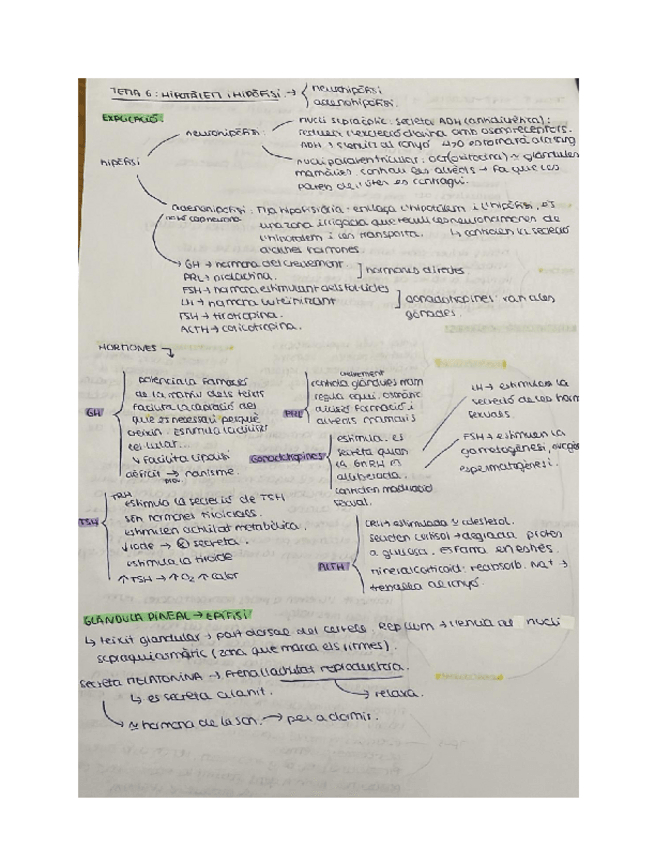 TEMA 6: HIPOTÀLEM I HIPÒFISI → neurohipòfisi
adenohipòfisi.
EXPLICACIÓ
hipòfisi
neurohipòfisi
nucli supraòptic: secreta ADH (antidiürètica):
amb osmoreceptors.
nucli paraventricular: OCT (oxitocina) ≃ glàndules
mamàries.
parets de l'úter es contragui.
adenohipòfisi: Tija hipofisiària - enllaça l'hipotàlem i l'hipòfisi, és
una zona irrigada que recull les neurohormones de
l'hipotàlem i les transporta. ↳ controlen la secreció
d'altres hormones.
GH → hormona del creixement
PRL → prolactina.
hormones directes
FSH → hormona estimulant dels fol·licles
LH → hormona luteinitzant
gonadotropines van a les
gònades.
TSH → tirotropina.
ACTH → corticotropina.
HORMONES
GH
potencia la formació
de la matriu dels teixits
facilita la captació del
que es necessari perquè
creixin. estimula la divisió
cel·lular...
↓ facilita
dèficit → nanisme.
PRL
creixement
controla glàndules mam
Gonadotropines
estimula. es
secreta quan
la GnRH és
alliberada.
controlen maduració
sexual.
LH → estimulen la
secreció de les horm
sexuals.
FSH → estimulen la
gametogènesi,
espermatogènesi.
TSH
TRH
estimula la secreció de TSH
són hormones tiroïdals.
estimulen activitat metabòlica.
↓ iode → secreta.
estimula la tiroide
↑ TSH → ↑ O2 ↑ calor
ACTH
CRH → estimulada ≃ colesterol.
secreten cortisol → degrada proten
a glucosa. es fa en estrès.
mineralcorticoid: reabsorb. Na+ →
GLÀNDULA PINEAL → EPÍFISI
↳ teixit glandular → part dorsal del cervell. Rep llum → nucli
supraquiasmàtic (zona que marca els ritmes).
secreta MELATONINA → frena l'activitat reproductora.
↳ es secreta a la nit.
→ relaxa.
≃ hormona de la son. → per a dormir.